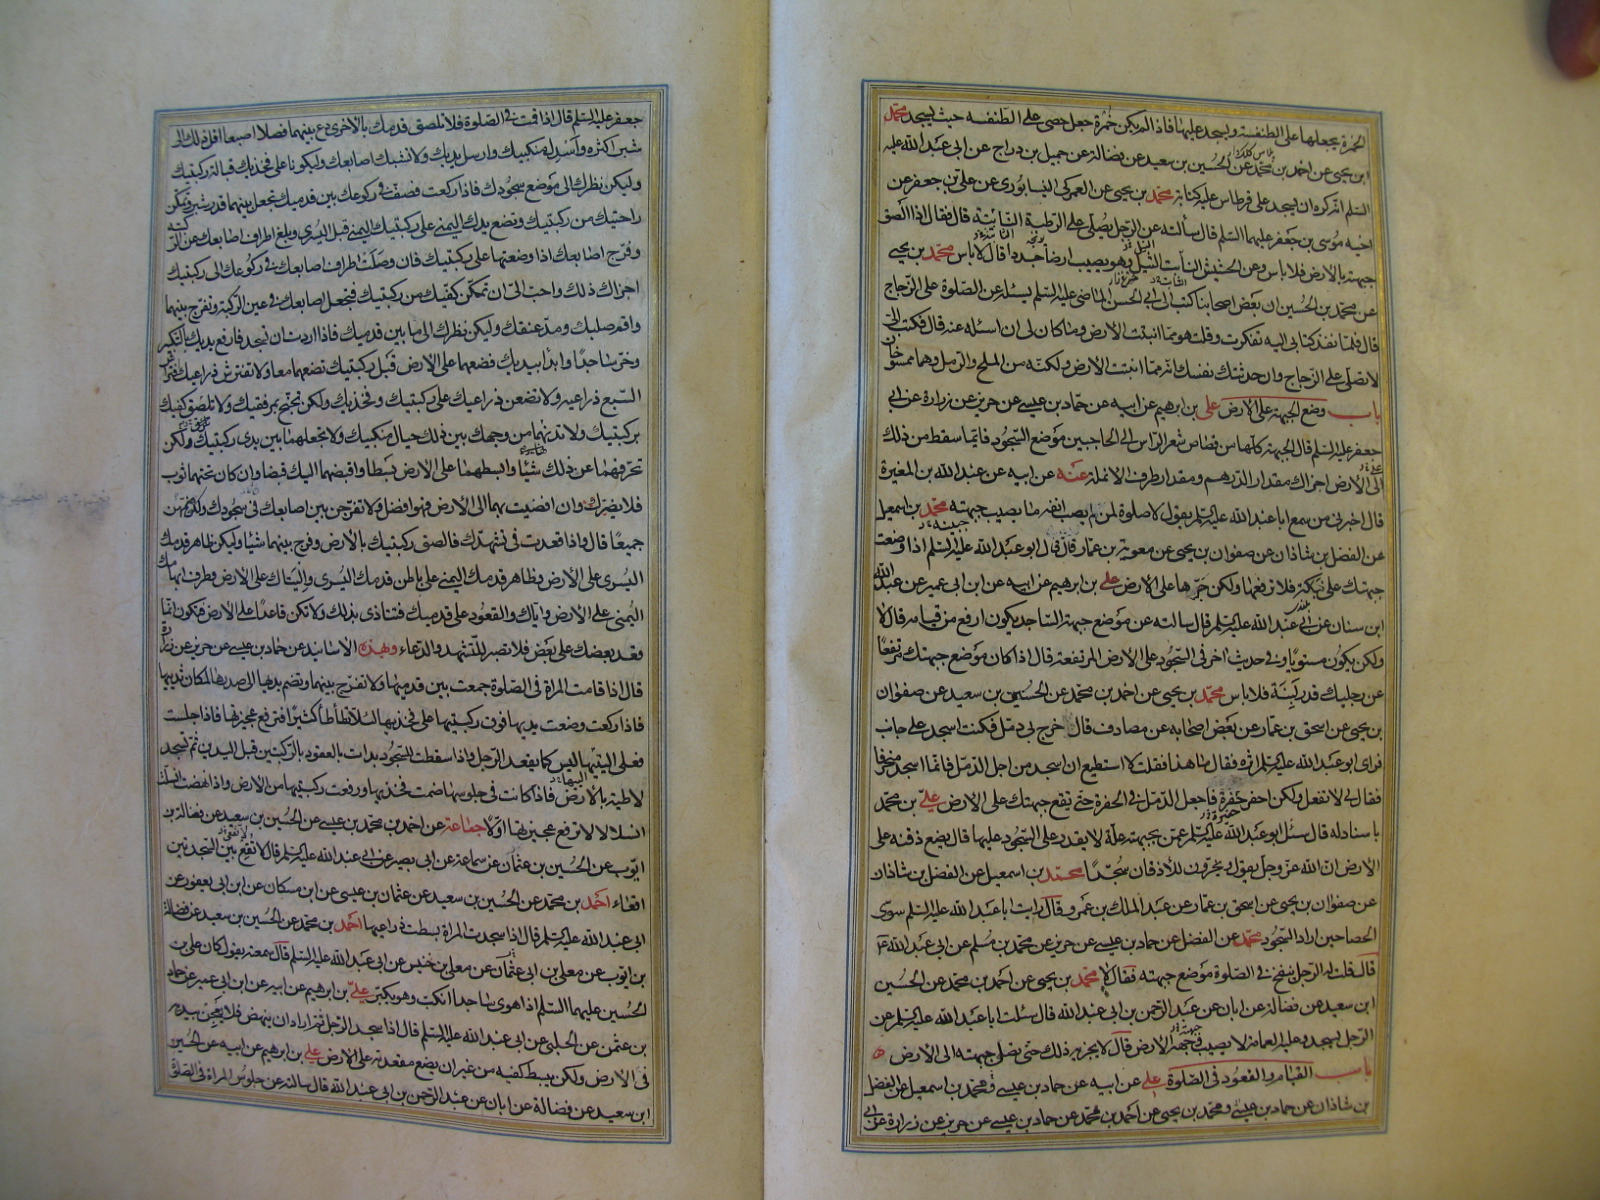 الخمرة يجعلها على الطنفسة ويسجد عليها فاذا لم يكن خمرة جعل حصى على الطنفسه حيث يسجد محمّد
ابن يحيى عن احمد بن محمّد عن الحسين بن سعيد عن فضالة عن جميل بن دراج عن ابى عبد الله عليه
السّلم انّه كره ان يسجد على قرطاس عليه كتابة محمّد بن يحيى عن العمركى النيسابورى عن على بن جعفر عن
اخيه موسى بن جعفر عليهما السّلم قال سألته عن الرّجل يصلّى على الرّطبة النّابتة قال فقال اذا الصق
جبهته بالارض فلا باس وعن الحشيش النّابت الثيل وهو يصيب ارضا جددا قال لا باس محمّد بن يحيى
عن محمّد بن الحسين ان بعض اصحابنا كتب الى ابى الحسن الماضى عليه السّلم يسئله عن الصّلوة على الزّجاج
قال فلمّا نفذ كتابى اليه تفكرت وقلت هو ممّا انبتت الارض وما كان لى ان اسئله عنه قال فكتب الىّ
لا تصلّ على الزّجاج وان حدثتك نفسك انّه ممّا انبتت الارض ولكنّه من الملح والرّمل وهما ممسوخان
باب وضع الجبهة على الارض على بن ابرهيم عن ابيه عن حمّاد بن عيسى عن حريز عن زرارة عن ابى
جعفر عليه السّلم قال الجبهة كلّها من قصاص شعر الرّاس الى الحاجبين موضع السّجود فايّما سقط من ذلك
الى الارض اجزاك مقدار الدّرهم ومقدار طرف الانملة عنه عن ابيه عن عبد الله بن المغيرة
قال اخبرنى من سمع ابا عبد الله عليه السّلم يقول لا صلوة لمن لم يصب انفه ما يصيب جبهته محمّد بن اسمعيل
عن الفضل بن شاذان عن صفوان بن يحيى عن معوية بن عمّار قال قال ابو عبد الله عليه السّلم اذا وضعت
جبهتك على نبكة فلا ترفعها ولكن جرّها على الارض على بن ابرهيم عن ابيه عن ابن ابى عمير عن عبد الله
ابن سنان عن ابى عبد الله عليه السّلم قال سالته عن موضع جبهة السّاجد يكون ارفع من قيامه قال لا
ولكن يكون مستويا وفى حديث اخر فى السّجود على الارض المرتفعة قال اذا كان موضع جبهتك مرتفعًا
عن رجليك قدر لبنة فلا باس محمّد بن يحيى عن احمد بن محمّد عن الحسين بن سعيد عن صفوان
بن يحيى عن اسحق بن عمّار عن بعض اصحابه عن مصادف قال خرج بى دمّل فكنت اسجد على جانب
فراى ابو عبد الله عليه السّلم اثره فقال ما هذا فقلت لا استطيع ان اسجد من اجل الدّمّل فانّما اسجد منحرفا
فقال لى لا تفعل ولكن احفر حفرة فاجعل الدّمّل فى الحفرة حتى تقع جبهتك على الارض علىّ بن محمّد
باسناد له قال سئل ابو عبد الله عليه السّلم عمّن بجبهته علّة لا يقدر على السّجود عليها قال يضع ذقنه على
الارض انّ الله عزّ وجلّ يقول ويخرّون للاذقان سُجّدًا محمّد بن اسمعيل عن الفضل بن شاذان
عن صفوان بن يحيى عن اسحق بن عمّار عن عبد الملك بن عمرو قال رايت ابا عبد الله عليه السّلم سوّى
الحصا حين اراد السّجود محمّد عن الفضل عن حماد بن عيسى عن حريز عن محمّد بن مسلم عن ابى عبد الله ع
قال قلت له الرّجل ينفخ فى الصّلوة موضع جبهته فقال لا محمّد بن يحيى عن احمد بن محمّد عن الحسين
ابن سعيد عن فضالة عن ابان عن عبد الرّحمن بن ابى عبد الله قال سئلت ابا عبد الله عليه السّلم عن
الرّجل يسجد وعليه العمامة لا يصيب جبهته الارض قال لا يجزيه ذلك حتّى يصل جبهته الى الارض
باب القيام والقعود فى الصّلوة على عن ابيه عن حماد بن عيسى ومحمّد بن اسمعيل عن الفضل
بن شاذان عن حماد بن عيسى ومحمّد بن يحيى عن احمد بن محمّد عن حماد بن عيسى عن حريز عن زرارة عن ابى
جعفر عليه السّلم قال اذا قمت فى الصّلوة فلا تلصق قدمك بالاخرى دع بينهما فصلا اصبعا اقل ذلك الى
شبر اكثره واسدل منكبيك وارسل يديك ولا تشبك اصابعك وليكونا على فخذيك قبالة ركبتيك
وليكن نظرك الى موضع سجودك فاذا ركعت فصفّ فى ركوعك بين قدميك تجعل بينهما قدر شبر وتمكّن
راحتيك من ركبتيك وتضع يدك اليمنى على ركبتيك اليمنى قبل اليسرى وبلغ اطراف اصابعك عين الرّكبة
وفرّج اصابعك اذا وضعتها على ركبتيك فان وصلت اطراف اصابعك فى ركوعك الى ركبتيك
اجزاك ذلك واحبّ الىّ ان تمكّن كفّيك من ركبتيك فتجعل اصابعك فى عين الرّكبة وتفرّج بينهما
واقم صلبك ومدّ عنقك وليكن نظرك الى ما بين قدميك فاذا اردت ان تسجد فارفع يديك بالتكبير
وخرّ ساجدًا وابدأ بيديك فضعهما على الارض قبل ركبتيك تضعهما معا ولا تفترش ذراعيك افتراش
السّبع ذراعيه ولا تضعن ذراعيك على ركبتيك وفخذيك ولكن تجنّح بمرفقيك ولا تلصق كفيك
بركبتيك ولا تدنهما من وجهك بين ذلك حيال منكبيك ولا تجعلهما بين يدى ركبتيك ولكن
تحرّفهما عن ذلك شيئا وابسطهما على الارض بسطا واقبضهما اليك قبضا وان كان تحتهما ثوب
فلا يضرّك وان افضيت بهما الى الارض فهو افضل ولا تفرّجن بين اصابعك فى سجودك ولكن ضمّهن
جميعًا قال واذا قعدت فى تشهّدك فالصق ركبتيك بالارض وفرّج بينهما شيئا وليكن ظاهر قدمك
اليسرى على الارض وظاهر قدمك اليمنى على باطن قدمك اليسرى واليتاك على الارض وطرف ابهامك
اليمنى على الارض وايّاك والقعود على قدميك فتتاذى بذلك ولا تكن قاعدًا على الارض فتكون انّما
وقعد بعضك على بعض فلا تصبر للتشهد والدّعاء وبهذه الاسانيد عن حماد بن عيسى عن حريز عن زرارة
قال اذا قامت المراة فى الصّلوة جمعت بين قدميها ولا تفرّج بينهما وتضم يديها الى صدرها لمكان ثدييها
فاذا ركعت وضعت يديها فوق ركبتيها على فخذيها لئلا تطأطأ كثيرًا فترتفع عجيزتها فاذا جلست
فعلى اليتيها ليس كما يقعد الرّجل واذا سقطت للسّجود بدات بالقعود بالرّكبتين قبل اليدين ثم تسجد
لاطية بالارض فاذا كانت فى جلوسها ضمت فخذيها ورفعت ركبتيها من الارض واذا نهضت انسلّت
انسلالا لا ترفع عجيزتها اوّلا جماعة عن احمد بن محمّد بن عيسى عن الحسين بن سعيد عن فضالة بن
ايّوب عن الحسين بن عثمان عن سماعة عن ابى بصير عن ابى عبد الله عليه السّلم قال لا تقع بين السّجدتين
اقعاء احمد بن محمّد عن الحسين بن سعيد عن عثمان بن عيسى عن ابن مسكان عن ابن ابى يعفور عن
ابى عبد الله عليه السّلم قال اذا سجدت المراة بسطت ذراعيها احمد بن محمّد عن الحسين بن سعيد عن فضالة
بن ايّوب عن معلى بن ابى عثمان عن معلى بن خنيس عن ابى عبد الله عليه السّلم قال سمعته يقول كان على بن
الحسين عليهما السّلم اذا هوى ساجدا انكبّ وهو يكبّر علىّ بن ابرهيم عن ابيه عن ابن ابى عمير عن حماد
بن عثمن عن الحلبى عن ابى عبد الله عليه السّلم قال اذا سجد الرّجل ثم اراد ان ينهض فلا يعجن بيديه
فى الارض ولكن يبسط كفيه من غير ان يضع مقعدته على الارض على بن ابرهيم عن ابيه عن الحسين
ابن سعيد عن فضالة عن ابان عن عبد الرّحمن بن ابى عبد الله قال سالته عن جلوس المراة فى الصّلوة